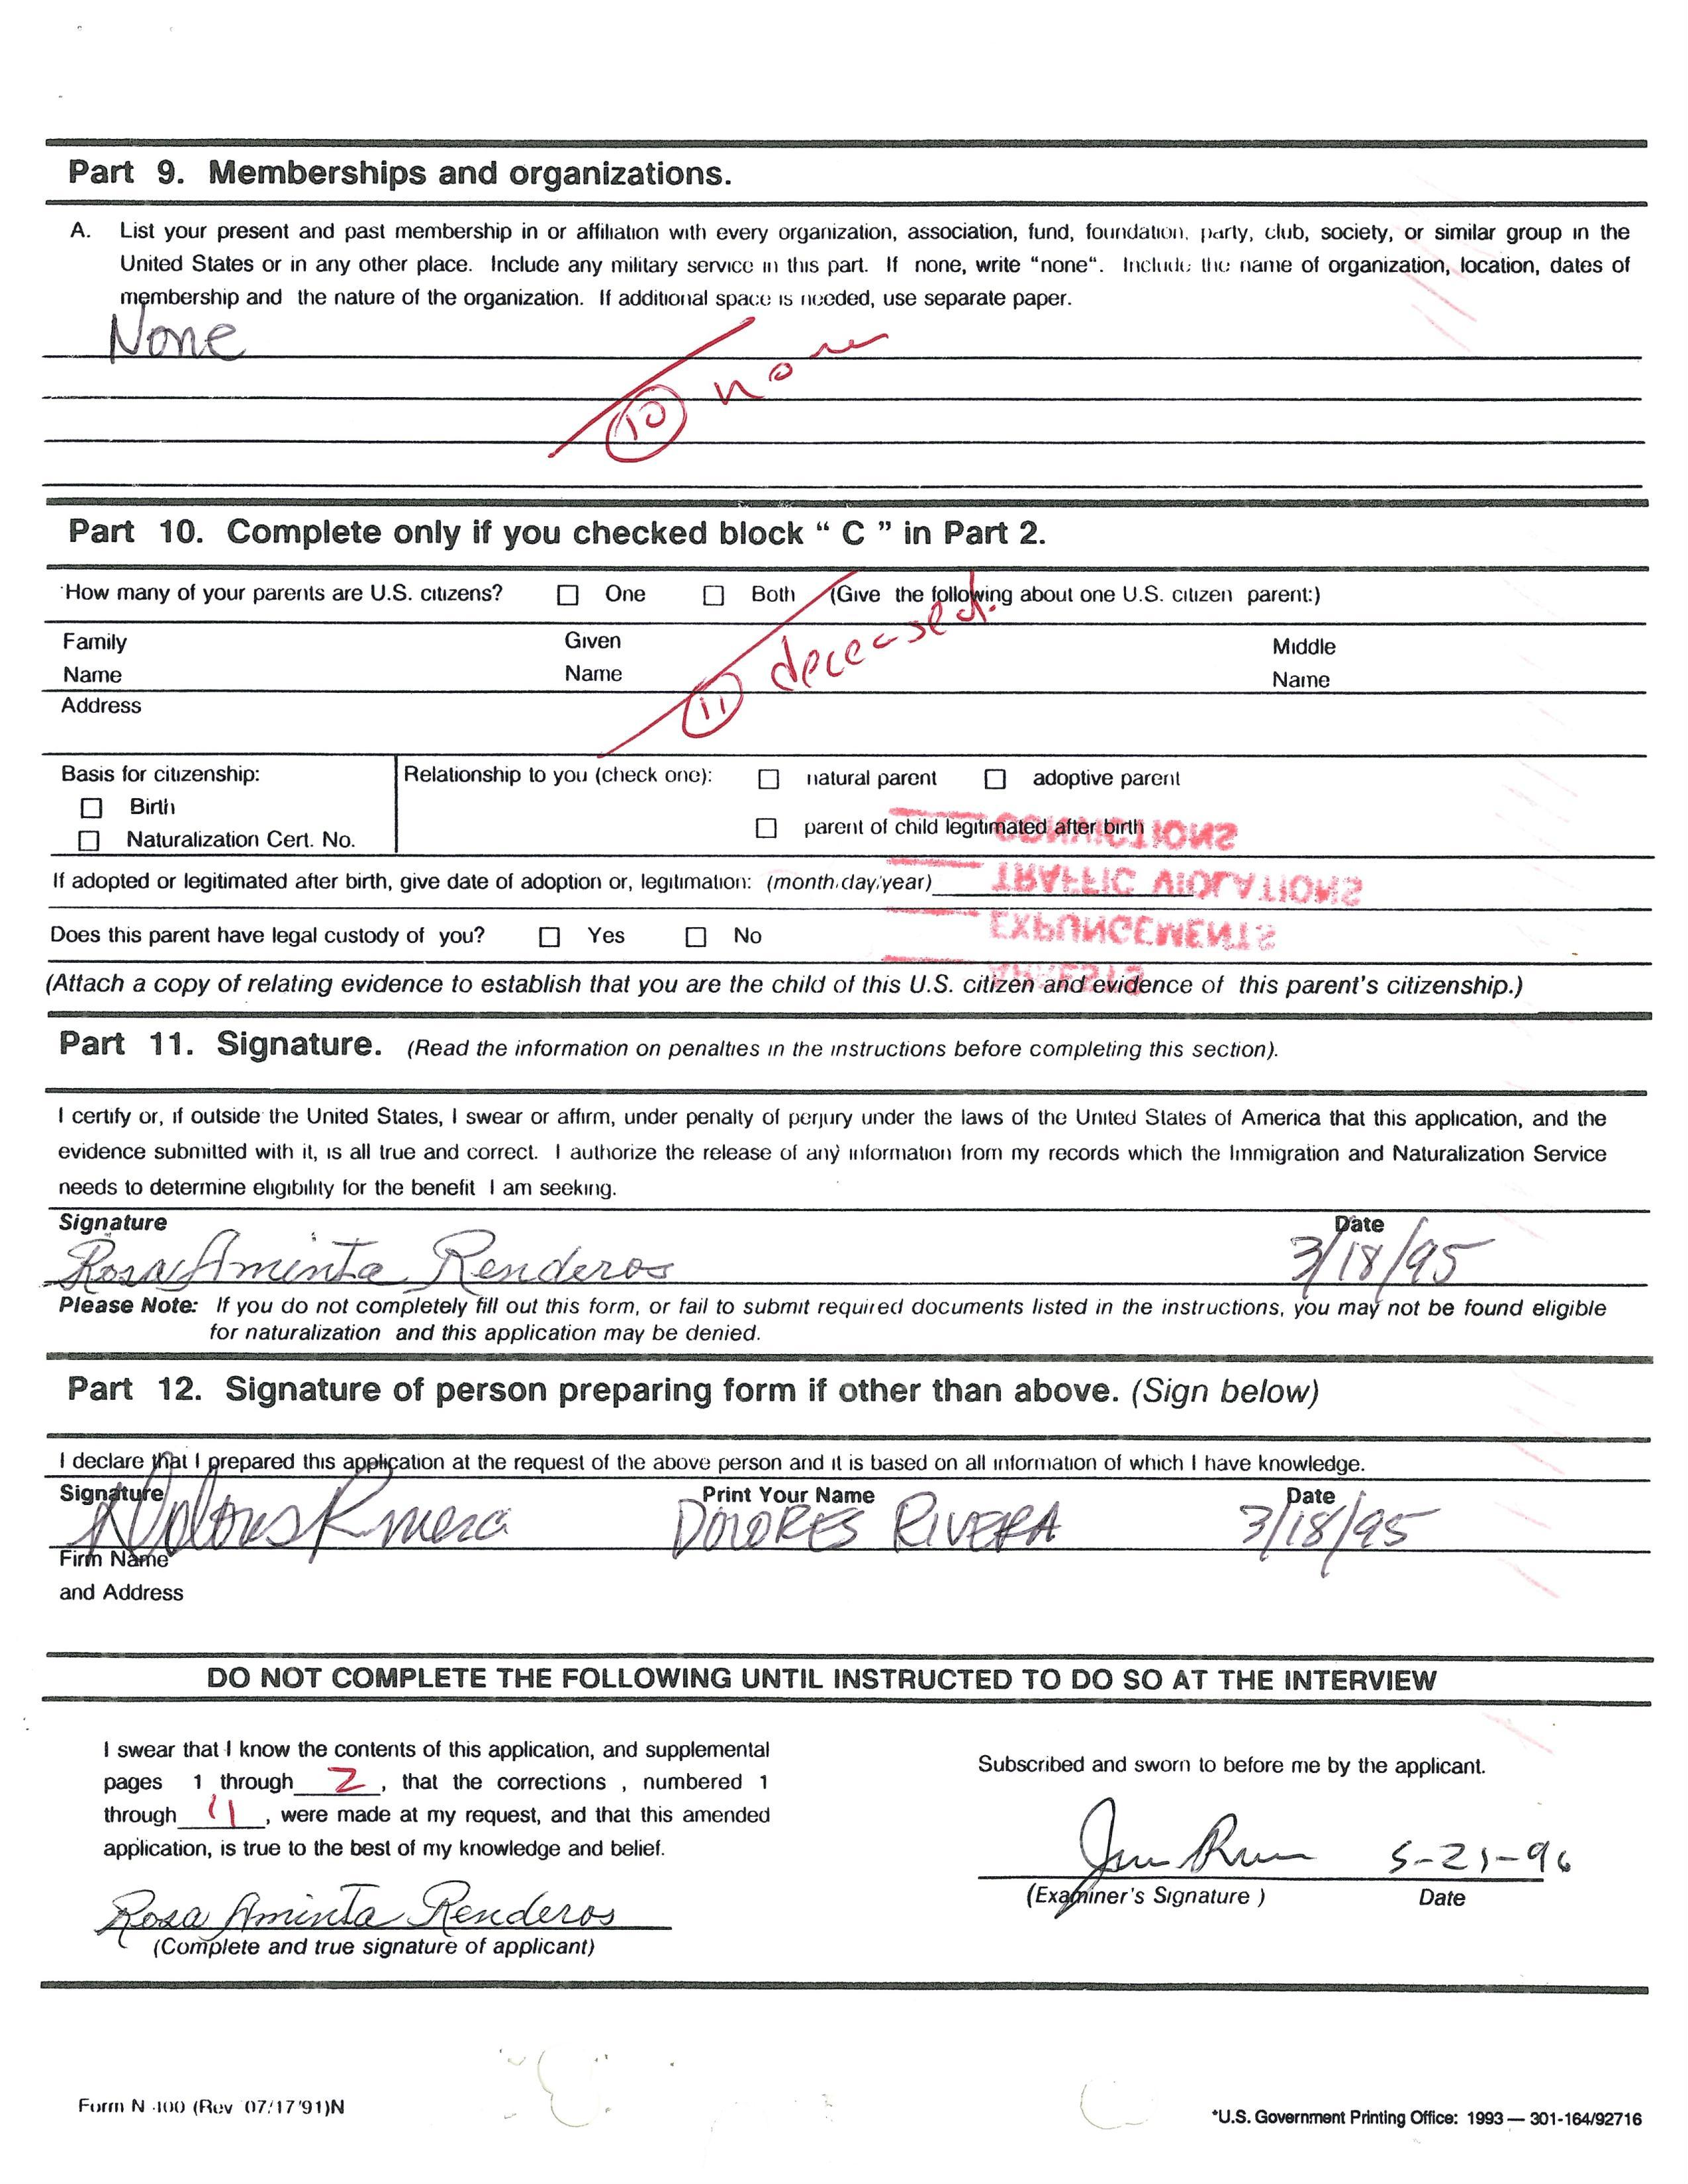 Part 9. Memberships and organizations.
A. List your present and past membership in or affiliation with every organization, association, fund, foundation, party, club, society, or similar group in the
United States or in any other place. Include any military service in this part. If none, write "none". Include the name of organization, location, dates of
membership and the nature of the organization. If additional space is needed, use separate paper.
None
10 none
Part 10. Complete only if you checked block " C " in Part 2.
How many of your parents are U.S. citizens? ☐ One ☐ Both (Give the following about one U.S. citizen parent:)
Family Name Given Name Middle Name
11 deceased.
Address
Basis for citizenship: Relationship to you (check one): ☐ natural parent ☐ adoptive parent
☐ Birth
☐ parent of child legitimated after birth
☐ Naturalization Cert. No.
CONVICTIONS
If adopted or legitimated after birth, give date of adoption or, legitimation: (month/day/year)
TRAFFIC VIOLATIONS
EXPUNGEMENTS
Does this parent have legal custody of you? ☐ Yes ☐ No
ARRESTS
(Attach a copy of relating evidence to establish that you are the child of this U.S. citizen and evidence of this parent's citizenship.)
Part 11. Signature. (Read the information on penalties in the instructions before completing this section).
I certify or, if outside the United States, I swear or affirm, under penalty of perjury under the laws of the United States of America that this application, and the
evidence submitted with it, is all true and correct. I authorize the release of any information from my records which the Immigration and Naturalization Service
needs to determine eligibility for the benefit I am seeking.
Signature Date
Rosa Aminta Renderos 3/18/95
Please Note: If you do not completely fill out this form, or fail to submit required documents listed in the instructions, you may not be found eligible
for naturalization and this application may be denied.
Part 12. Signature of person preparing form if other than above. (Sign below)
I declare that I prepared this application at the request of the above person and it is based on all information of which I have knowledge.
Signature Print Your Name Date
Dolores Rivera DOLORES RIVERA 3/18/95
Firm Name
and Address
DO NOT COMPLETE THE FOLLOWING UNTIL INSTRUCTED TO DO SO AT THE INTERVIEW
I swear that I know the contents of this application, and supplemental
pages 1 through 2, that the corrections , numbered 1
through 11, were made at my request, and that this amended
application, is true to the best of my knowledge and belief.
Rosa Aminta Renderos
(Complete and true signature of applicant)
Subscribed and sworn to before me by the applicant.
5-21-96
(Examiner's Signature ) Date
Form N-400 (Rev 07/17/91)N
*U.S. Government Printing Office: 1993 — 301-164/92716